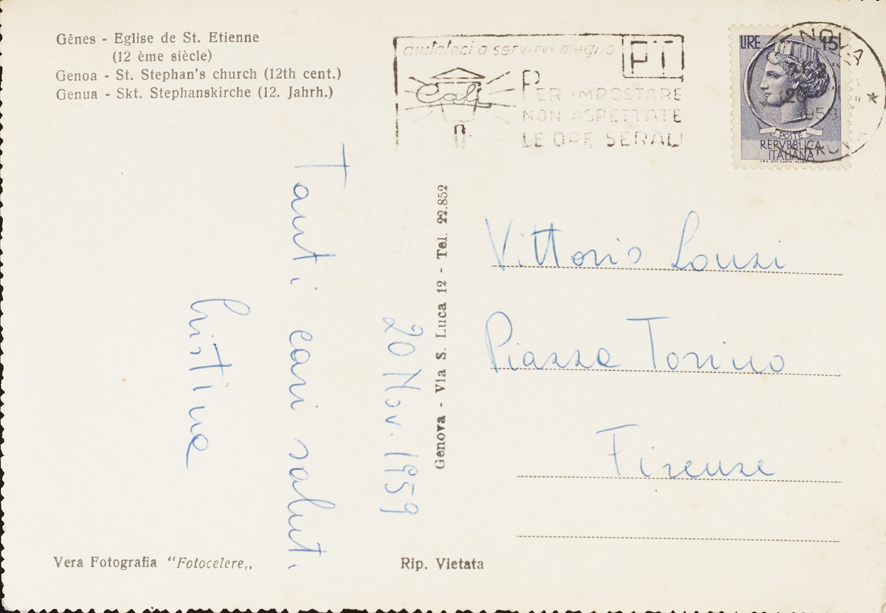 Gênes - Eglise de St. Etienne
(12 ème siècle)
Genoa - St. Stephan's church (12th cent.)
Genua - Skt. Stephanskirche (12. Jahrh.)
aiutateci a servirvi meglio
PT
PER IMPOSTARE
NON ASPETTATE
LE ORE SERALI
LIRE 15
POSTE
REPVBBLICA
ITALIANA
GENOVA
1959
20 Nov. 1959
Tanti cari saluti
Cristina
Genova - Via S. Luca 12 - Tel. 22.852
Vittorio
Piazza Torino
Firenze
Vera Fotografia "Fotocelere„
Rip. Vietata